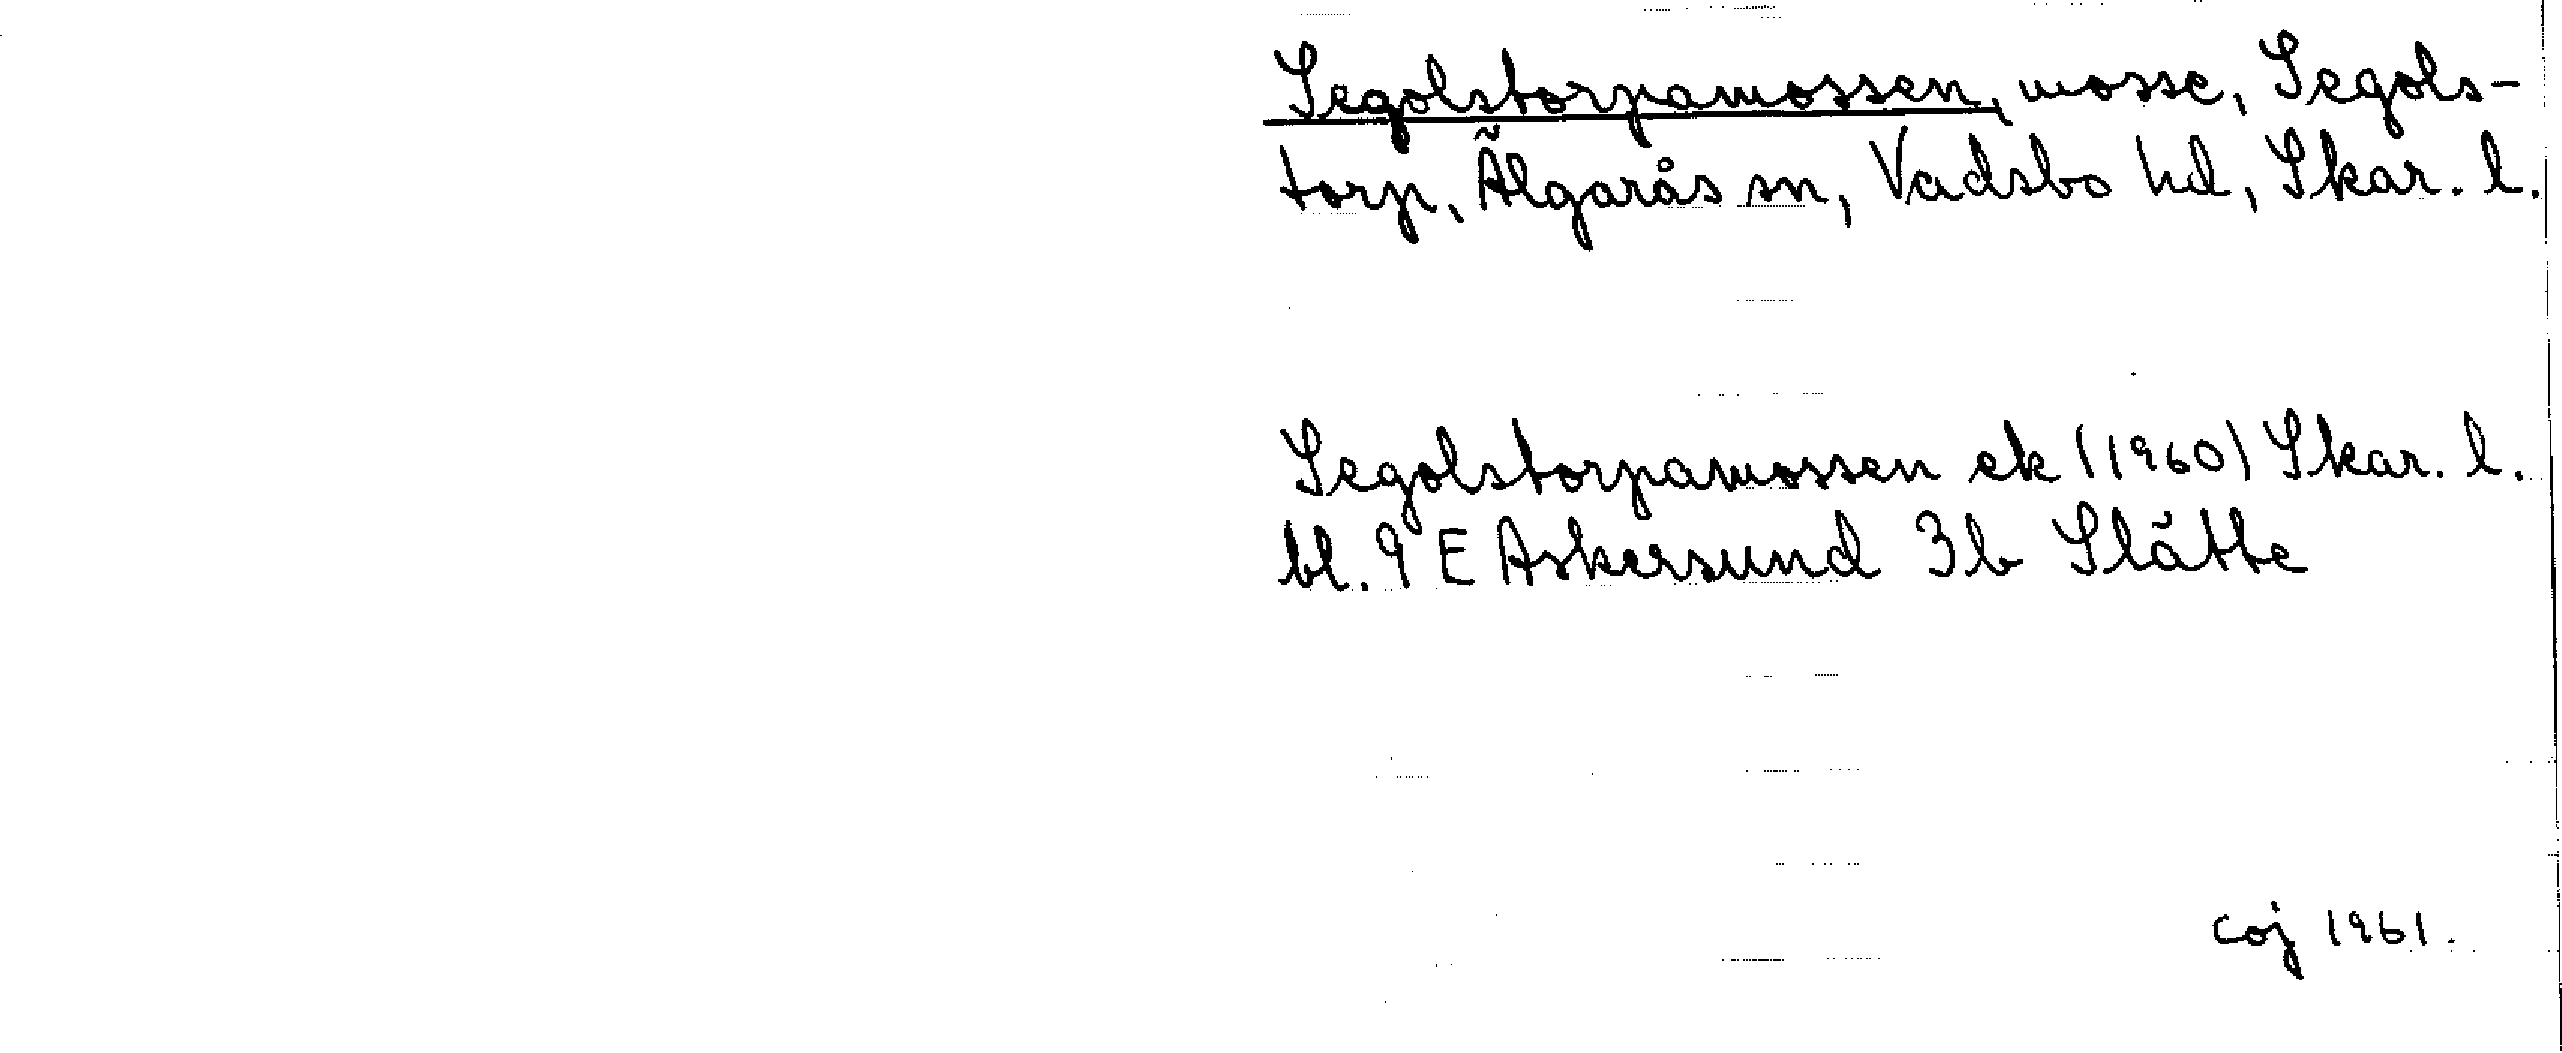 Segolstorpamossen, mosse, Segols-
torp, Älgarås sn, Vadsbo hd, Skar. l.
Segolstorpamossen ek (1960) Skar. l.
bl. 9 E Askersund 3b Slätte
coj 1961.